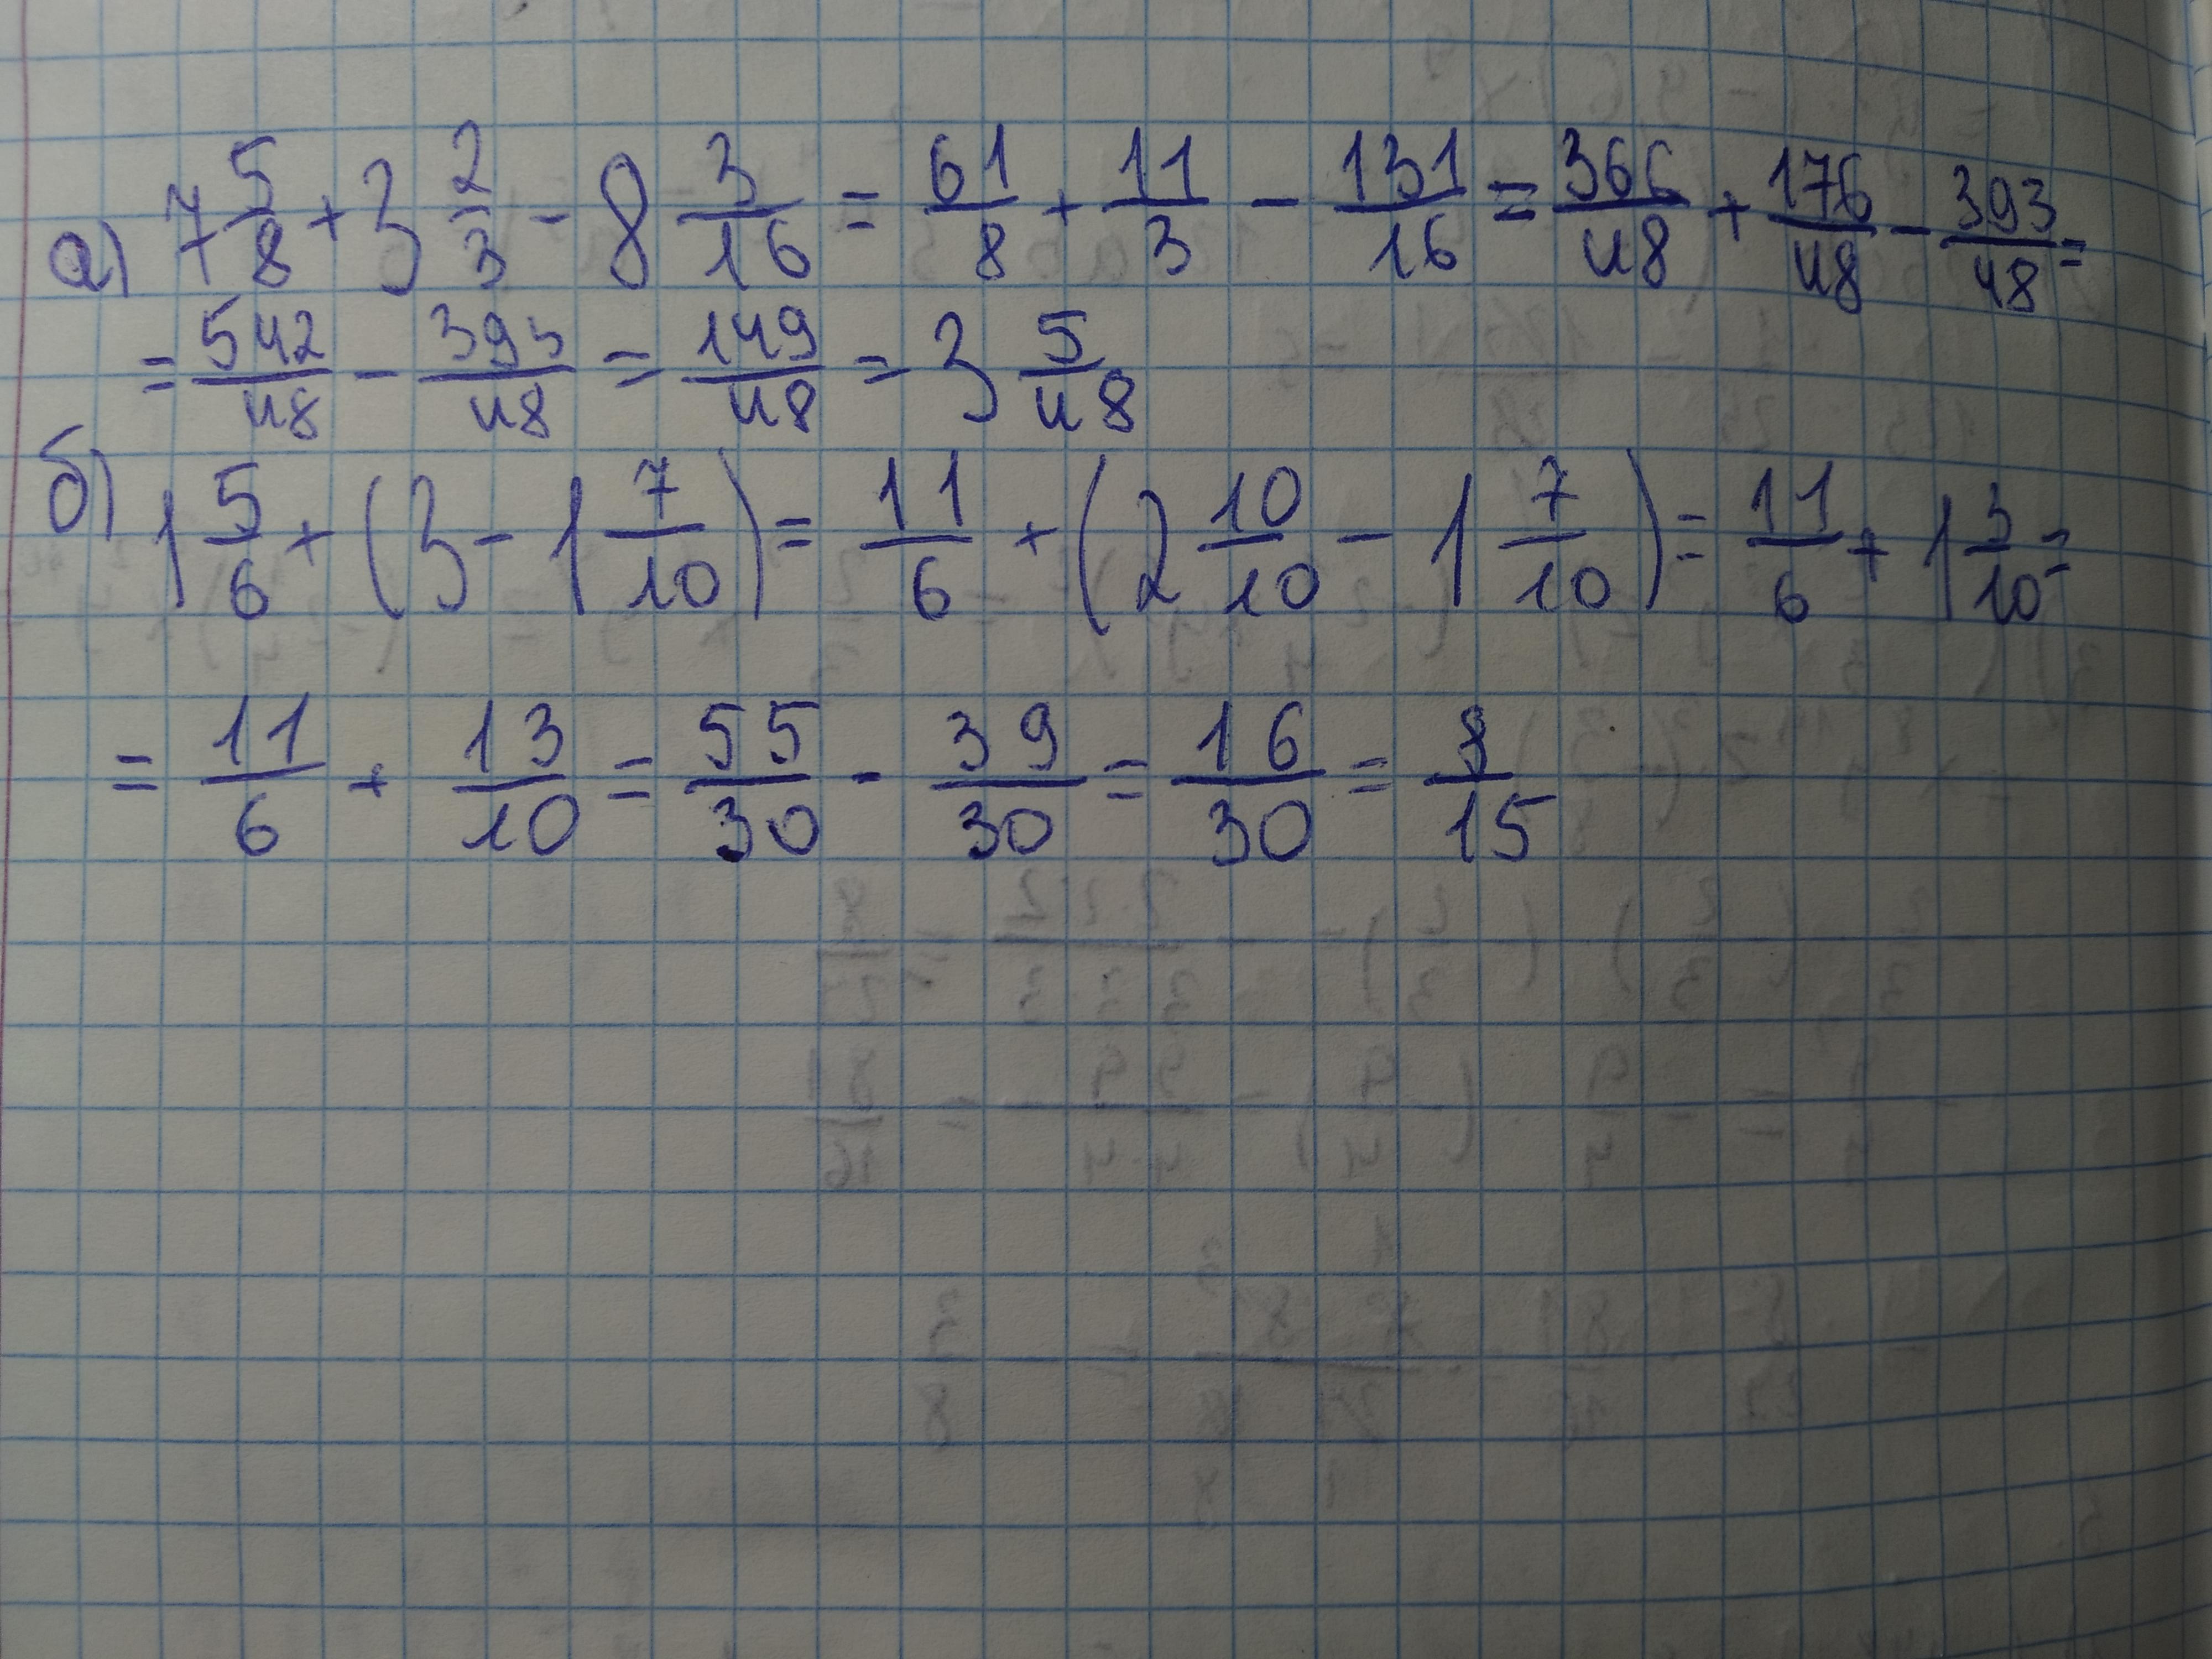 а) 7 5/8 + 3 2/3 - 8 3/16 = 61/8 + 11/3 - 131/16 = 366/48 + 176/48 - 393/48 =
= 542/48 - 393/48 = 149/48 = 3 5/48
б) 1 5/6 + (3 - 1 7/10) = 11/6 + (2 10/10 - 1 7/10) = 11/6 + 1 3/10 =
= 11/6 + 13/10 = 55/30 - 39/30 = 16/30 = 8/15